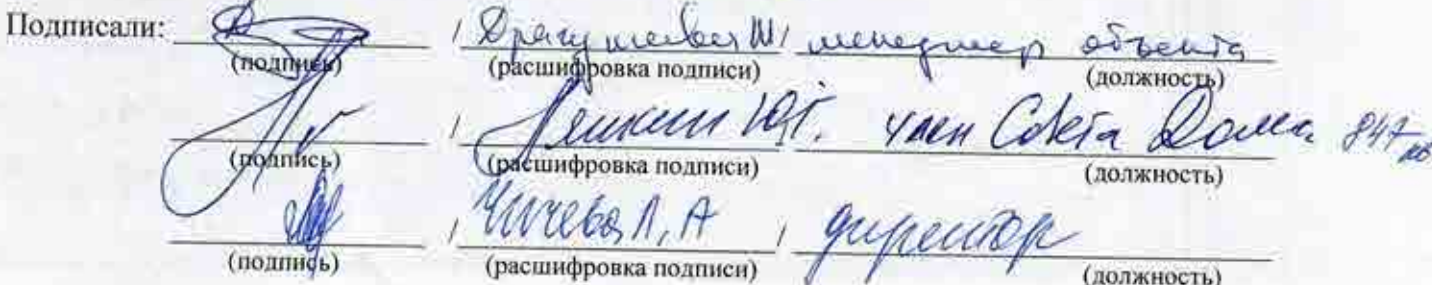 Подписали: / / менеджер объекта
(подпись) (расшифровка подписи) (должность)
/ член Совета Дома 847 кв
(подпись) (расшифровка подписи) (должность)
/ Чичева Л, А / директор
(подпись) (расшифровка подписи) (должность)